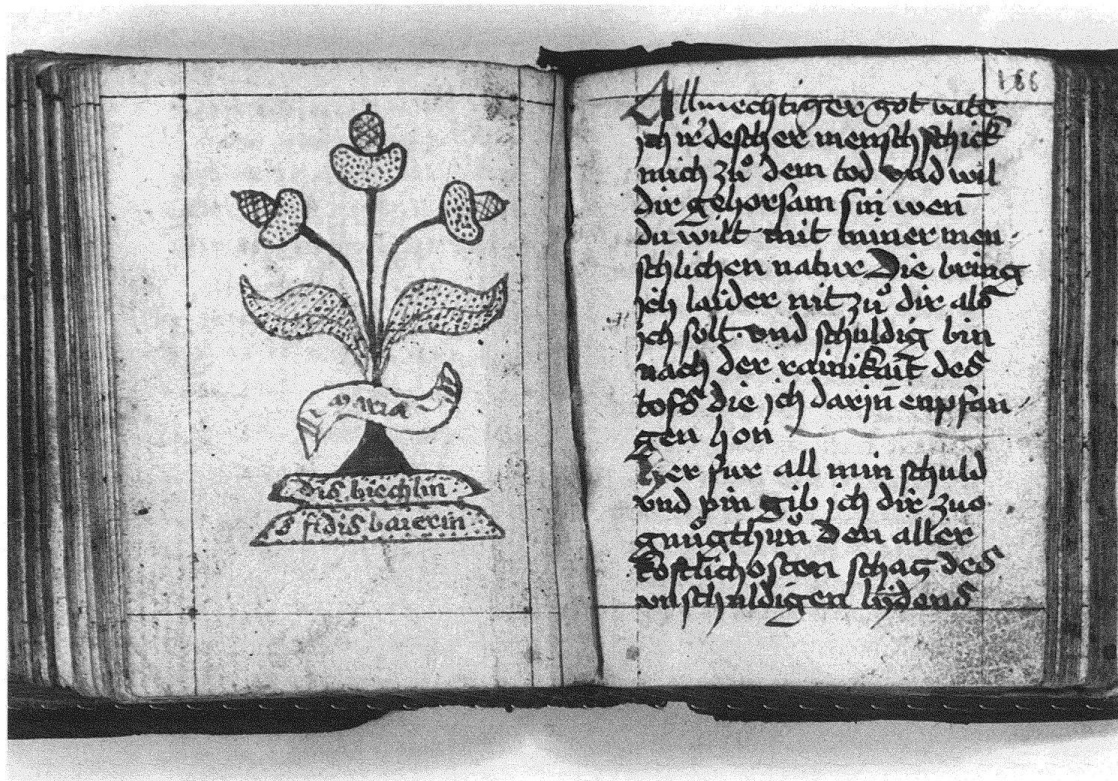 maria
diß biechlin
s fidis baierin
188
Allmechtiger got vate
jch irdescher mensch schick
mich zuͦ dem tod vnd wil
dir gehorsam sin wen̄
du wilt mit miner men
schlichen natur Die bring
ich laider nit zuͦ dir als
ich solt vnd schuldig bin
nach der rainikait des
tofs die jch darin̄ enpfan
gen hon
Her fur all min schuld
vnd pin gib jch dir zuo
gnuͦgthun Den aller
kostlichosten schatz des
vnschuldigen lÿdens